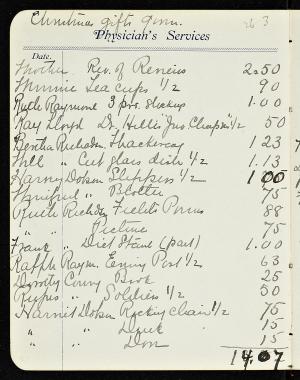 Christmas gifts given.
Physician's Services
Date.
Mother Rev. of Reviews 2.50
Minnie Tea cups 1/2 90
Ruth Raymond 3 prs. Stockings 1.00
Ray Lloyd Dr. 1/2 50
Bertha Richardson Thackeray 1 23
Will " Cut glass dish 1/2 1.13
Harry Slippers 1/2 1 00
Blotter 75
Ruth Field's Poems 88
" " Picture 75
Frank " (part) 1.00
Ralph Raym. Evening Post 1/2 63
Dorothy Book 25
Rufus " Soldiers 1/2 50
Harriet Rocking chair 1/2 75
" " Duck 15
" " 15
14.07